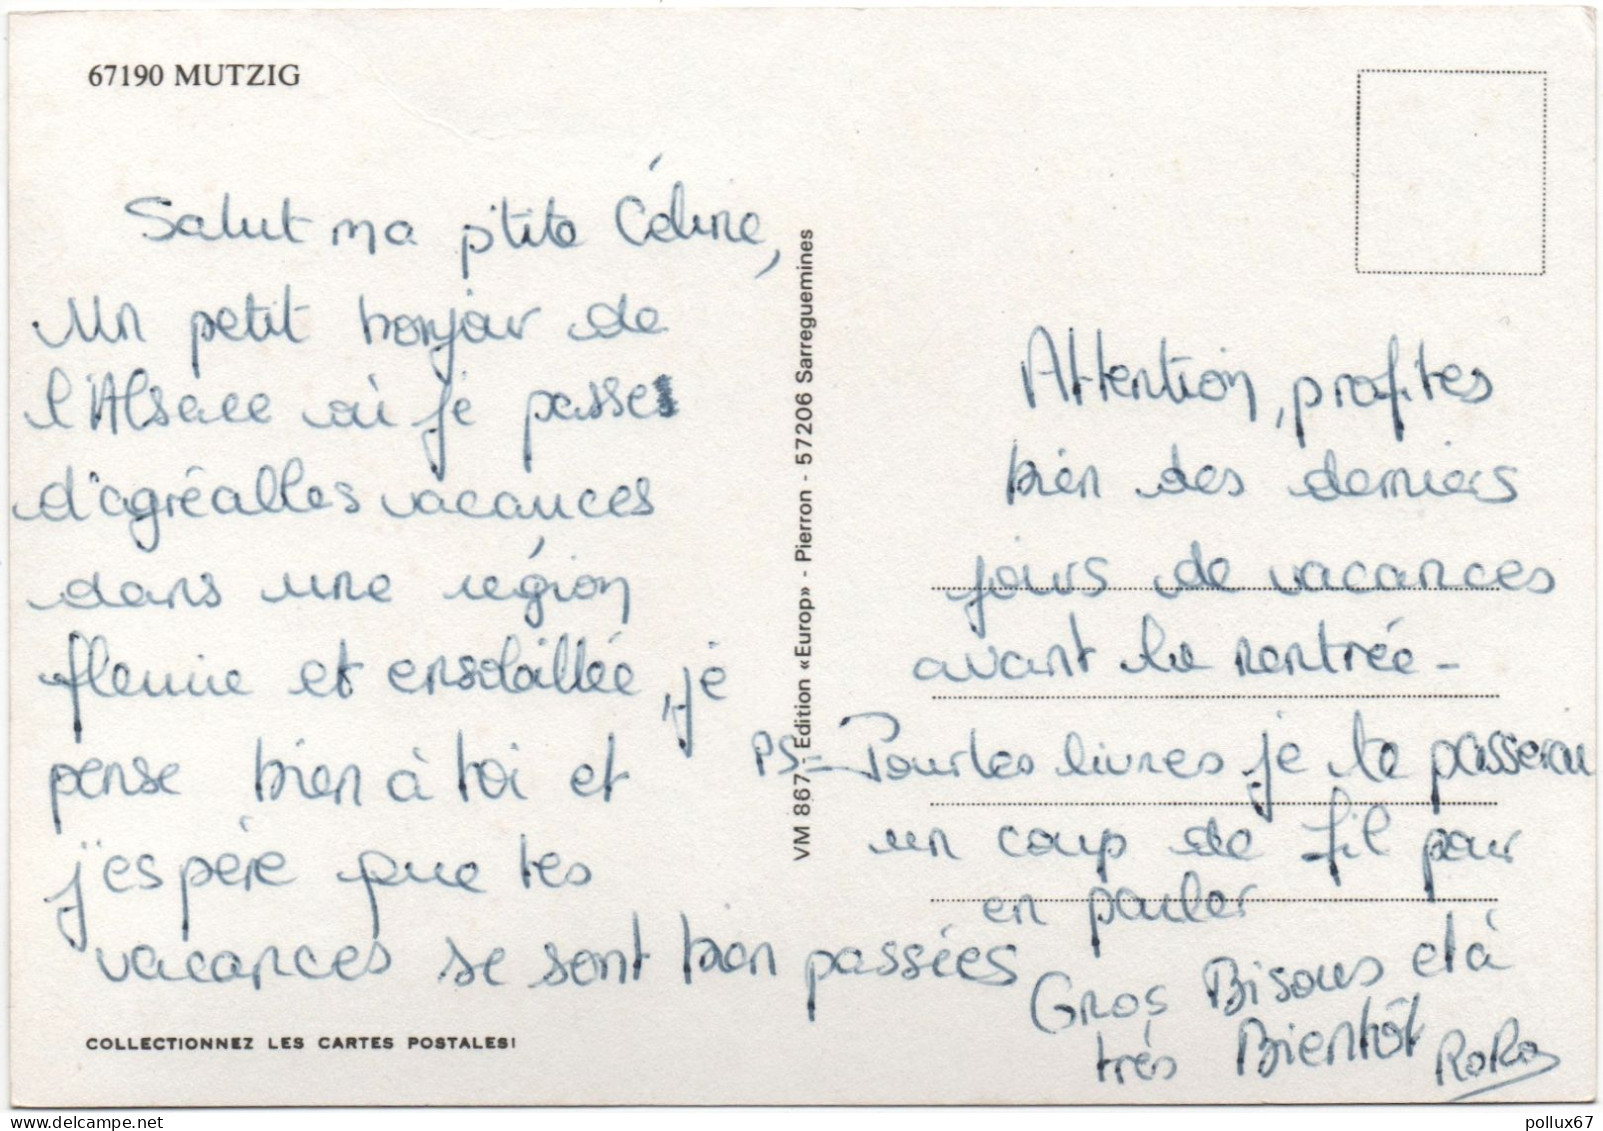 67190 MUTZIG
Salut ma p'tite Céline,
Un petit bonjour de
l'Alsace où je passe
d'agréalles vacances
dans une région
fleurie et ensolaillée, je
pense bien à toi et
j'espère que tes
vacances se sont bien passées
COLLECTIONNEZ LES CARTES POSTALES!
VM 867 - Edition «Europ» - Pierron - 57206 Sarreguemines
Attention, profites
bien des derniers
jours de vacances
avant la rentrée -
PS = Pour les livres je te passerai
un coup de fil pour
en parler
Gros Bisous et à
très Bientôt
RoRo
pollux67